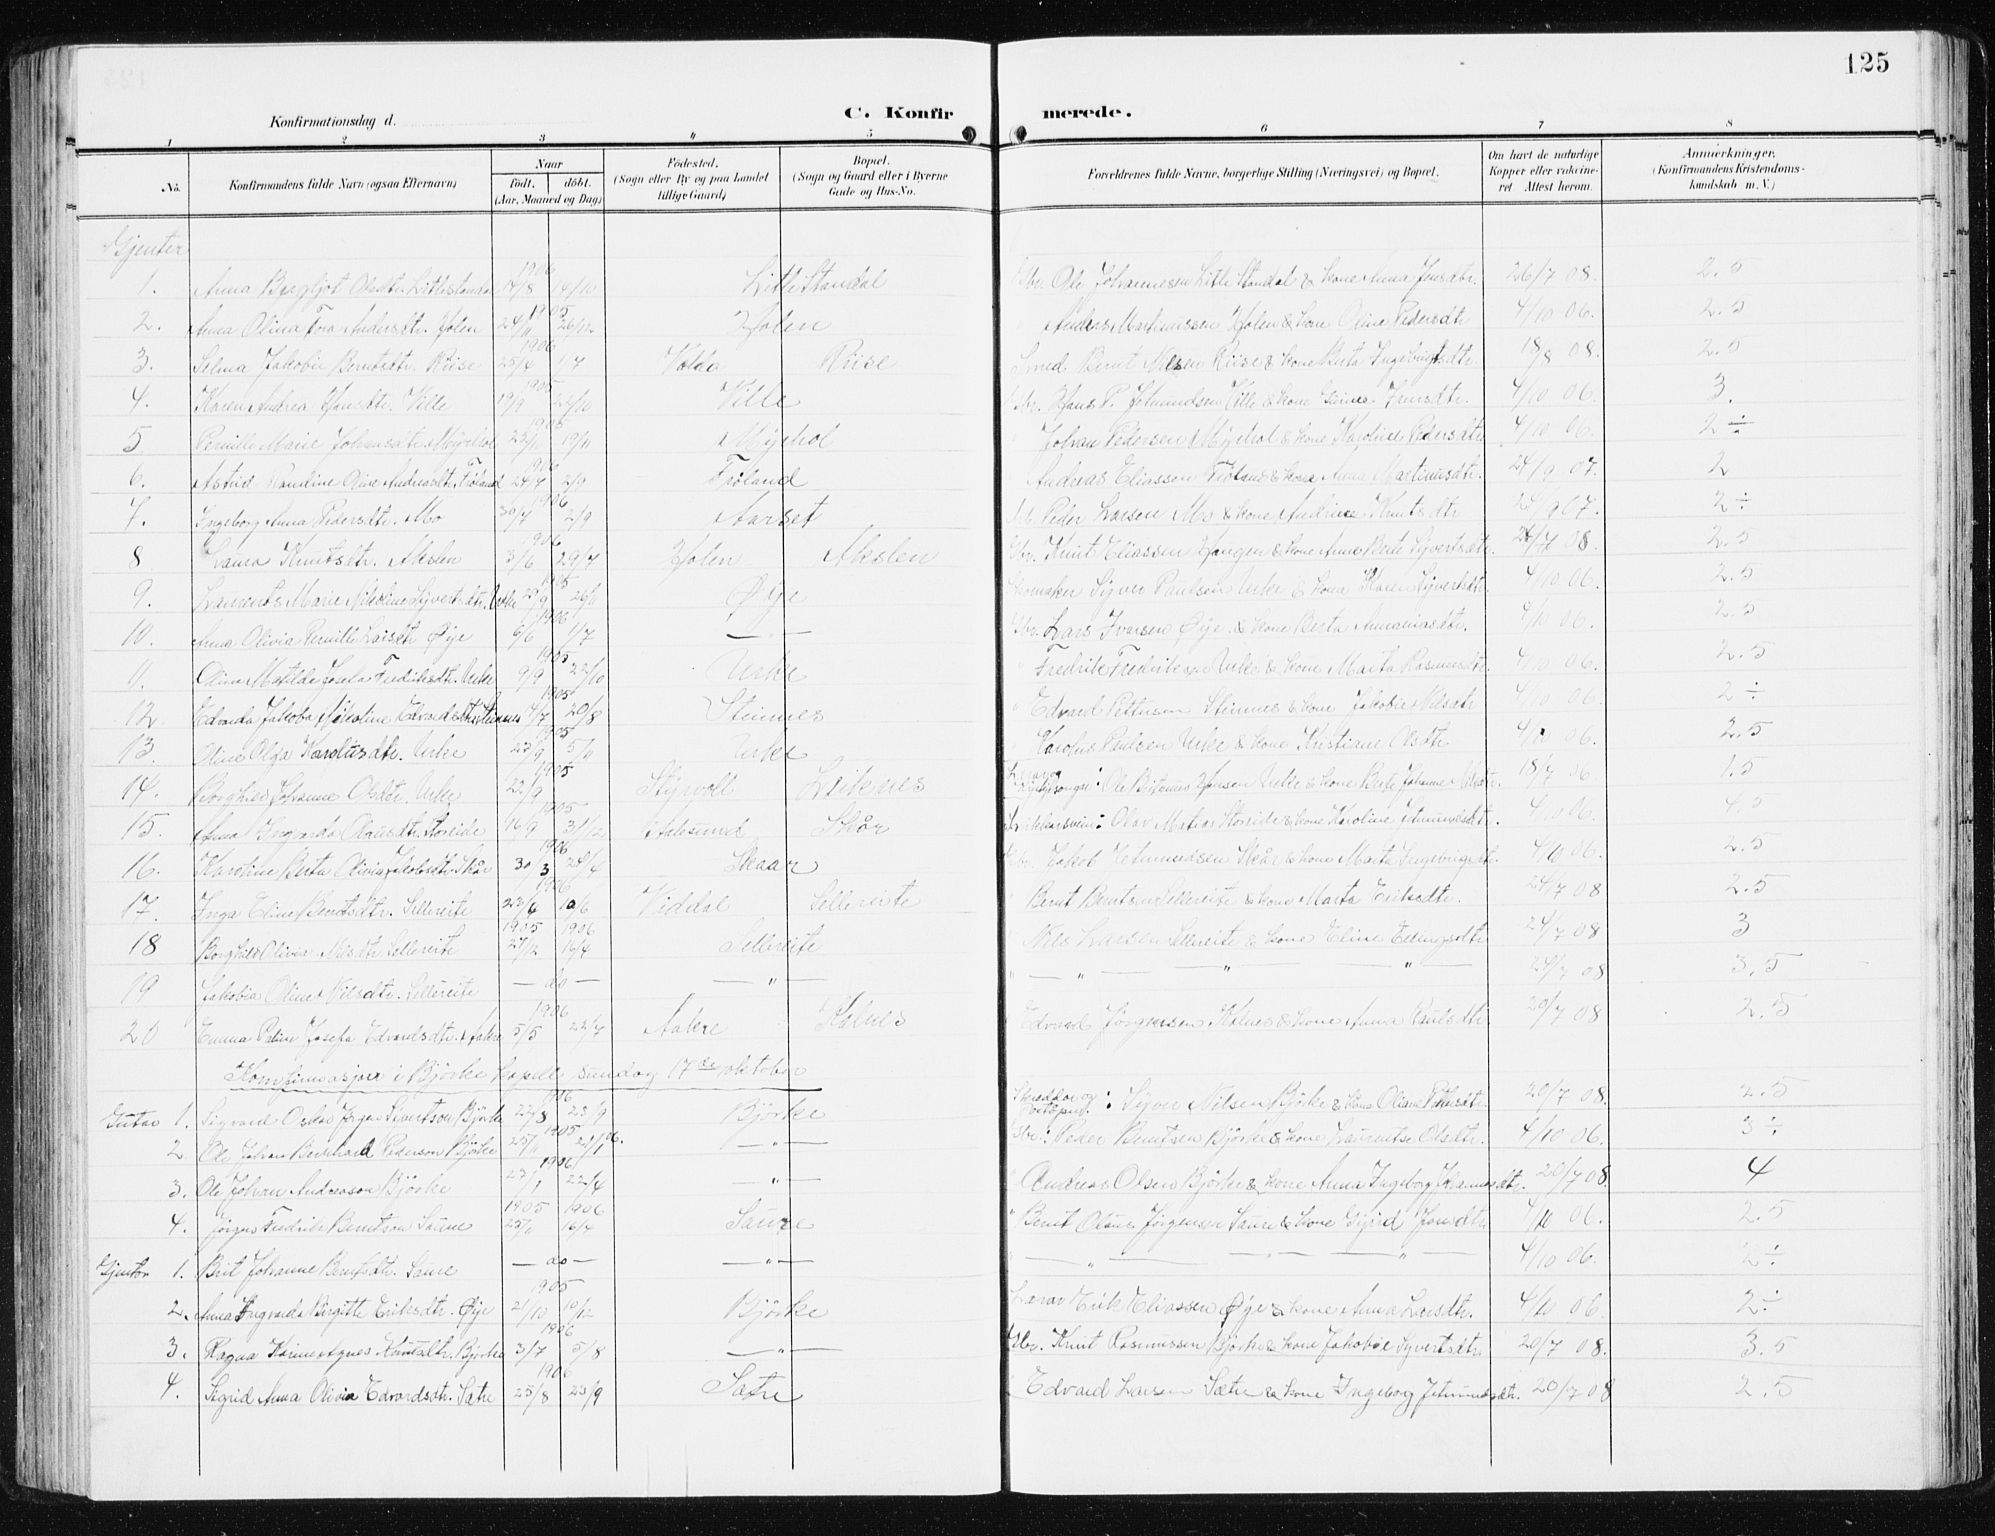 125
Konfirmationsdag d.
C. Konfir
merede.
1 2 3 4 5 6 7 8
No.
Konfirmandens fulde Navn (ogsaa Efternavn)
Naar
født. døbt.
(Aar, Maaned og Dag)
Fødested.
(Sogn eller By og paa Landet
tillige Gaard)
Bopæl.
(Sogn og Gaard eller i Byerne
Gade og Hus-No.
Forældrenes fulde Navne, borgerlige Stilling (Næringsvei) og Bopæl.
Om havt de naturlige
Kopper eller vakcine-
ret Attest herom.
Anmærkninger.
(Konfirmandens Kristendoms-
kundskab m. V.)
Gjenter
1. Anna Bergljot Olsdtr. Littlestandal 1906 14/8 14/10 Litle Standal Gbr. Ole Johannessen Litle Standal & kone Anna Jensdtr. 26/7 08. 2.5
2. Anna Olina Tora Andersdtr. Holen 1905 24/11 26/12 Holen Anders Martinussen Holen & kone Oline Pedersdtr 4/10 06. 2.5
3. Selma Jakobie Berntsdtr. Riise 1906 25/4 1/7 Volda Riise Smed Bernt Nilsen Riise & kone Berta Ingebrigtsdtr 18/8 08. 2.5
4. Karen Andrea Hansdtr. Ville 1905 19/9 Ville Hans P. Jetmundsen Ville & kone Jensdtr. 4/10 06. 3.
5 Pernille Marie Johansdtr. Myrhol 1905 19/11 Myrhol Johan Pedersen Myrhol & kone Karoline Pedersdtr. 4/10 06. 2 ÷
6. Astrid Pauline Oline Andreasdtr. Frøland 1906 24/7 2/9 Frøland Andreas Eliassen Frøland & kone Anna Martinusdtr. 24/9 07. 2
7. Ingeborg Anna Pedersdtr. Mo 1906 30/7 2/9 Aarset Peder Larsen Mo & kone Andrine Knutsdtr 24/9 07. 2 ÷
8 Laura Knutsdtr. Akslen 1906 3/6 29/7 Holen Akslen Gbr. Knut Eliassen Haugen & kone Anne Berte Syvertsdtr. 24/7 08. 2.5
9. Laurents Marie Nikoline Syvertsdtr. Urke 1905 29/9 26/11 Øye Skomaker Syver Paulsen Urke & kone Karen Syvertsdtr. 4/10 06. 2.5
10. Anna Olivia Pernille Larsdtr Øye 1906 6/6 1/7 — " — Gbr. Lars Ivarsen Øye & kone Berta Ananiasdtr. 4/10 06. 2.5
11. Oline Matilde Josefa Fredriksdtr. Urke 1905 9/9 22/10 Urke " Fredrik Fredriksen Urke & kone Marta Rasmusdtr. 4/10 06. 2.5
12. Edvarda Jakoba Nikoline Edvardsdtr. Stennes 1905 4/7 20/8 Stennes " Edvard Pettersen Stennes & kone Jakobie Nilsdtr 4/10 06. 2 ÷
13. Oline Olga Karolusdtr. Urke 1905 5/11 Urke " Karolus Paulsen Urke & kone Kristiane Olsdtr 4/10 06. 2.5
14. Borghild Johanne Olsdtr. Urke 1905 22/9 Styrvoll Leiknes Ole Hansen Urke & kone Berte Johanne 18/7 06 1.5
15. Anna Ingvarda Olausdtr. Storeide 1905 16/9 31/12 Aalesund Skår Olav Matias Storeide & kone Karoline Jetmundsdtr. 4/10 06.
16. Karoline Berta Olivia Jakobsdtr. Skår 1906 30/3 Skaar Jakob Jetmundsen Skår & kone Marta Ingebrigtsdtr. 4/10 06. 2.5
17. Inga Eline Berntsdtr. Sellereite 1906 23/4 10/6 Viddal Sellereite " Bernt Berntsen Sellereite & kone Marta Eriksdtr. 24/7 08 2.5
18 Borghild Olivie Nilsdtr Sellereite 1905 27/12 1906 16/4 Sellereite " Nils Larsen Sellereite & kone Eline Ellingsdtr 24/7 08 3
19 Jakobia Oline Nilsdtr. Sellereite — do — — " — " — " — " — " — 24/7 08 3.5
20 Emma Petine Josefa Edvardsdtr. Aakre 1906 5/5 22/7 Aakre Kalnes " Edvard Jørgensen Kalnes & kone Anna Paulsdtr. 20/7 08 2.5
Konfirmasjon i Bjørke kapell sundag 17de oktober
Gutar 1. Sigvard Oskar Jørgen Sivertson Bjørke 1906 22/8 23/9 Bjørke Skreddar og : Syver Nilsen Bjørke & kone Oliane Pettersdtr. 20/7 08. 2.5
2 Ole Johan Bernhard Pederson Bjørke 1905 25/11 21/1 06. — " — Gbr: Peder Berntsen Bjørke & kone Laurentse Olsdtr. 4/10 06. 3 ÷
3. Ole Johan Andreason Bjørke 1906 22/4 — " — " Andreas Olsen Bjørke & kone Anna Ingeborg Johannesdtr. 20/7 08. 4
4. Jørgen Fredrik Berntson Saure 1905 25/11 1906 16/4 Saure " Bernt Olaus Jørgensen Saure & kone Gjørid Jonsdtr. 4/10 06. 2.5
Gjentor 1. Brit Johanne Berntsdtr. Saure — do — — " — " — " — — " — 4/10 06. 2 ÷
2. Anna Ingvarda Birgitte Eriksdtr. Øye 1905 21/10 10/12 Bjørke Lærar Erik Eliassen Øye & kone Anna Larsdtr. 4/10 06. 2 ÷
3. Ragna Karine Agnes Knutsdtr. Bjørke 1906 3/7 5/8 — " — Gbr. Knut Rasmussen Bjørke & kone Jakobie Syvertsdtr. 20/7 08. 3.5
4. Sigrid Anna Olivia Edvardsdtr. Sætre 1906 25/8 23/9 Sætre " Edvard Larsen Sætre & kone Ingeborg Jetmundsdtr. 20/7 08 2.5